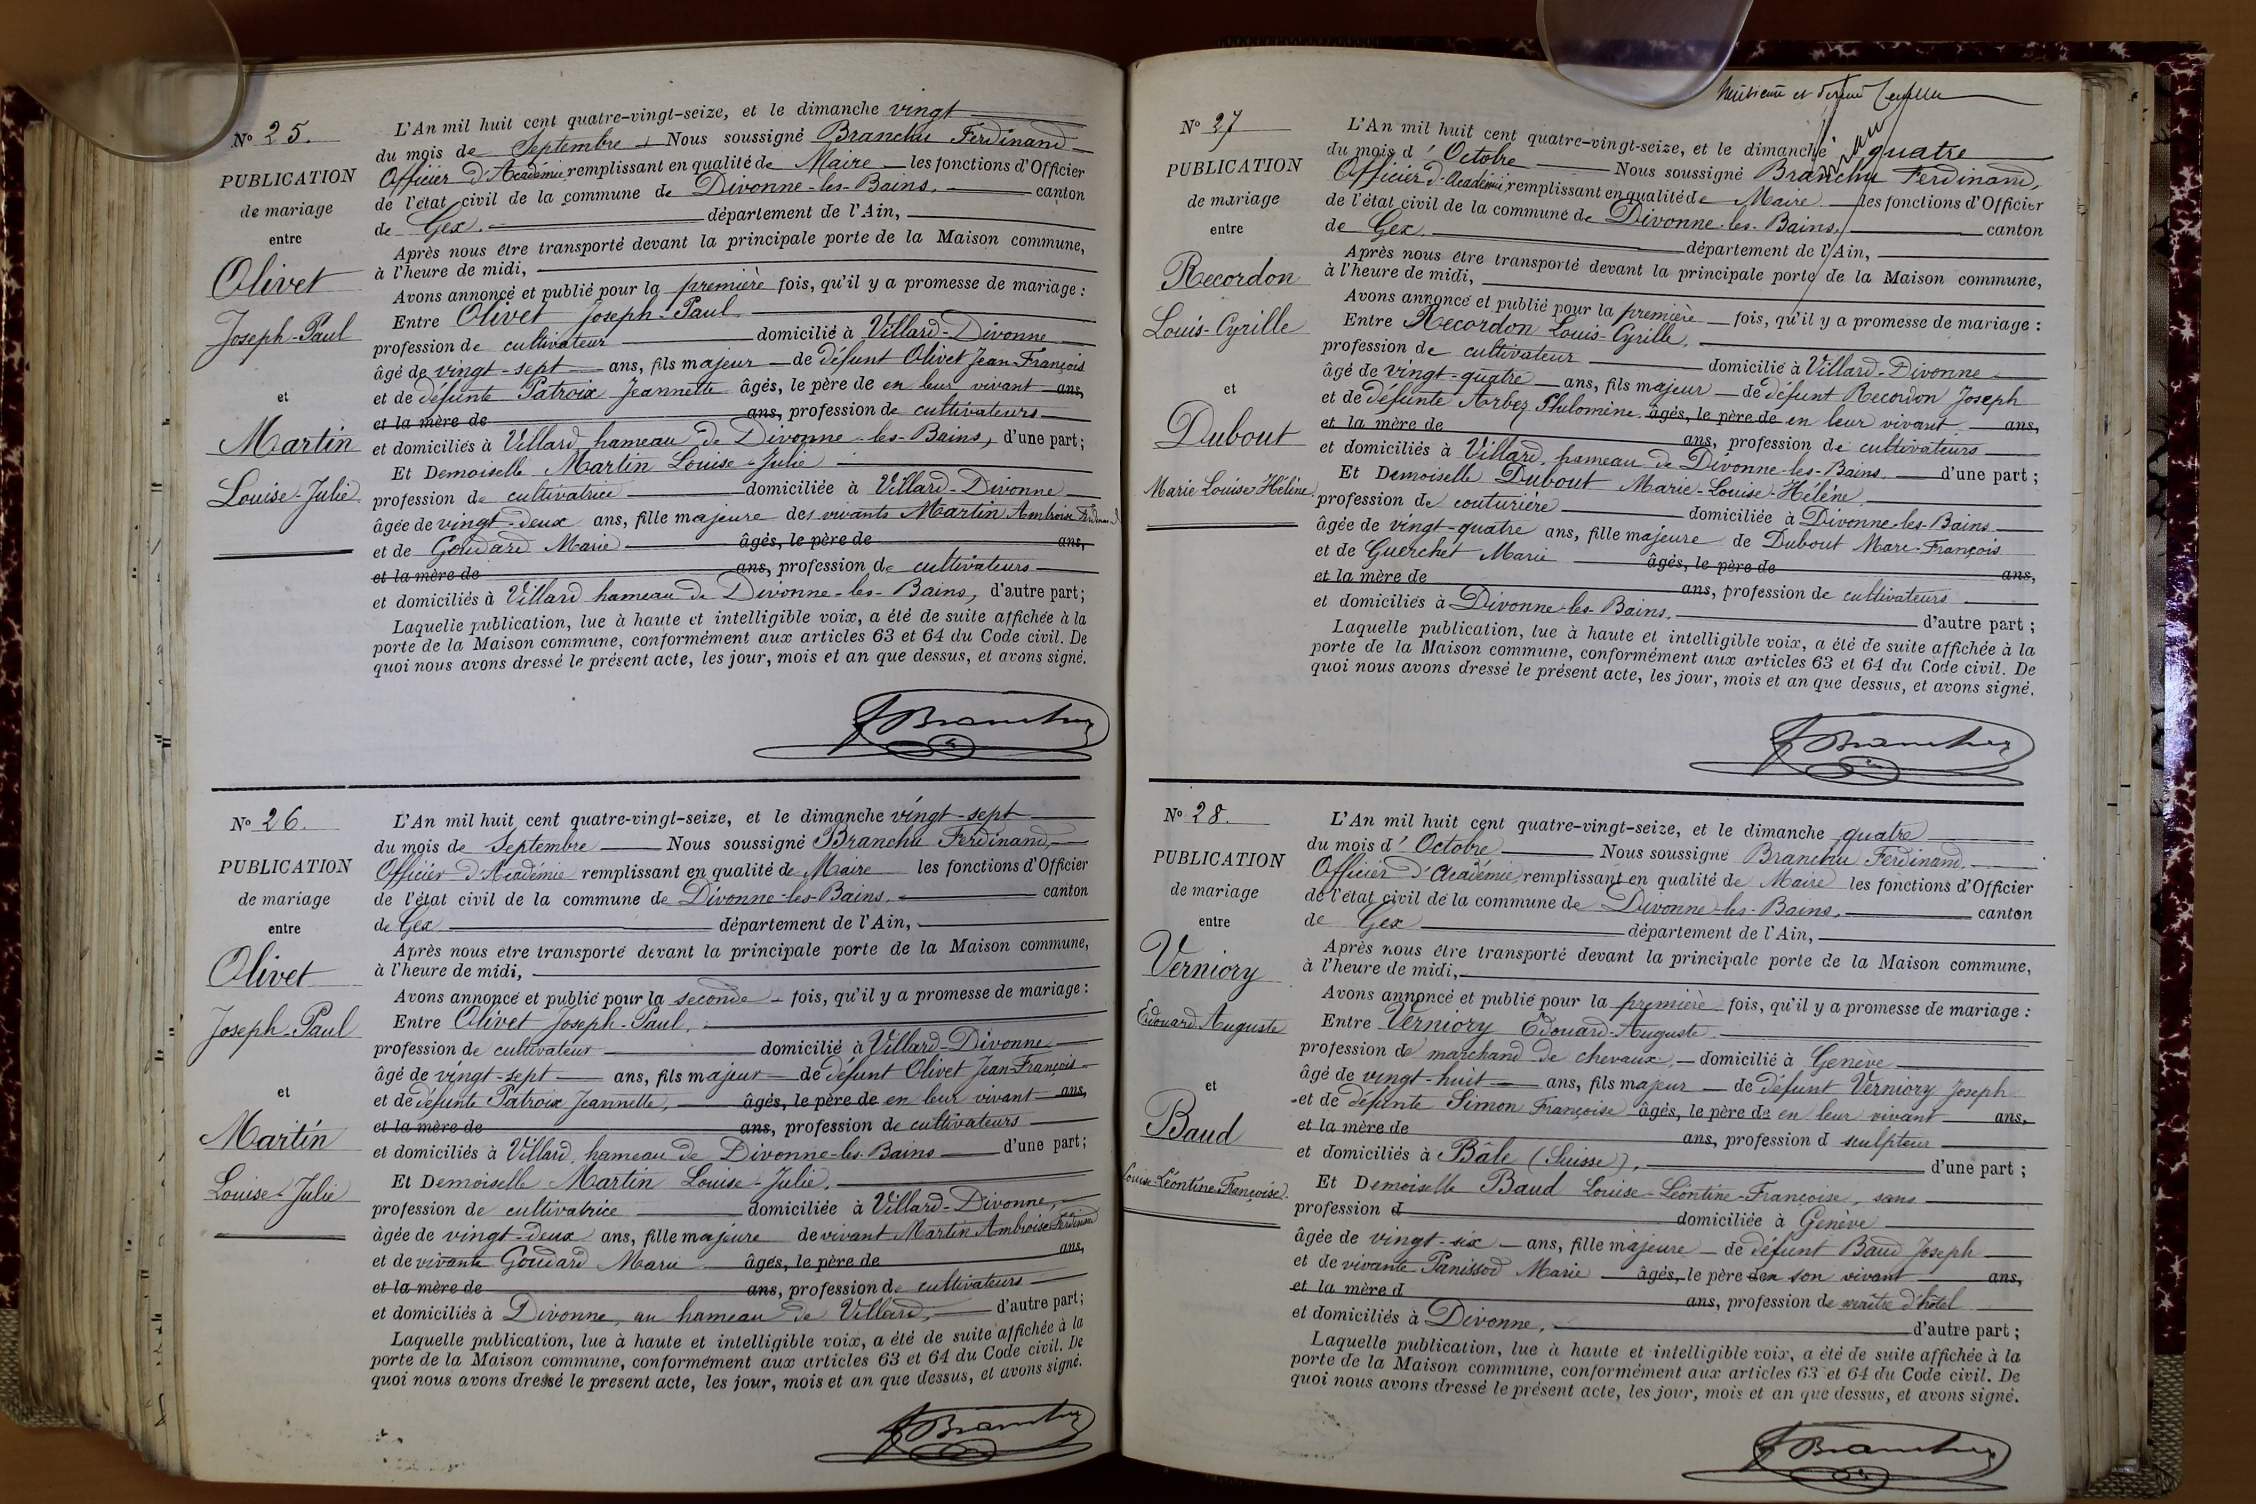 N° 25.
PUBLICATION
de mariage
entre
Olivet
Joseph-Paul
et
Martin
Louise-Julie
L'An mil huit cent quatre-vingt-seize, et le dimanche vingt
du mois de Septembre Nous soussigné Branchu Ferdinand
Officier d'Académie remplissant en qualité de Maire les fonctions d'Officier
de l'état civil de la commune de Divonne-les-Bains, canton
de Gex. département de l'Ain,
Après nous être transporté devant la principale porte de la Maison commune,
à l'heure de midi,
Avons annoncé et publié pour la première fois, qu'il y a promesse de mariage :
Entre Olivet Joseph-Paul
profession de cultivateur domicilié à Villard-Divonne
âgé de vingt-sept ans, fils majeur de défunt Olivet Jean-François
et de défunte Patroix Jeannette âgés, le père de en leur vivant ans,
et la mère de ans, profession de cultivateurs
et domiciliés à Villard hameau de Divonne-les-Bains, d'une part;
Et Demoiselle Martin Louise-Julie
profession de cultivatrice domiciliée à Villard-Divonne
âgée de vingt-deux ans, fille majeure des vivants Martin Ambroise Ferdinand
et de Goudard Marie âgés, le père de ans,
et la mère de ans, profession de cultivateurs
et domiciliés à Villard hameau de Divonne-les-Bains, d'autre part;
Laquelle publication, lue à haute et intelligible voix, a été de suite affichée à la
porte de la Maison commune, conformément aux articles 63 et 64 du Code civil. De
quoi nous avons dressé le présent acte, les jour, mois et an que dessus, et avons signé.
F Branchu
N° 26.
PUBLICATION
de mariage
entre
Olivet
Joseph-Paul
et
Martin
Louise-Julie
L'An mil huit cent quatre-vingt-seize, et le dimanche vingt-sept
du mois de Septembre Nous soussigné Branchu Ferdinand,
Officier d'Académie remplissant en qualité de Maire les fonctions d'Officier
de l'état civil de la commune de Divonne-les-Bains. canton
de Gex département de l'Ain,
Après nous être transporté devant la principale porte de la Maison commune,
à l'heure de midi,
Avons annoncé et publié pour la seconde fois, qu'il y a promesse de mariage :
Entre Olivet Joseph-Paul,
profession de cultivateur domicilié à Villard-Divonne
âgé de vingt-sept ans, fils majeur de défunt Olivet Jean-François
et de défunte Patroix Jeannette, âgés, le père de en leur vivant ans,
et la mère de ans, profession de cultivateurs
et domiciliés à Villard, hameau de Divonne-les-Bains d'une part;
Et Demoiselle Martin Louise-Julie.
profession de cultivatrice domiciliée à Villard-Divonne,
âgée de vingt-deux ans, fille majeure de vivant Martin Ambroise Ferdinand
et de vivante Goudard Marie âgés, le père de ans,
et la mère de ans, profession de cultivateurs
et domiciliés à Divonne, au hameau de Villard, d'autre part;
Laquelle publication, lue à haute et intelligible voix, a été de suite affichée à la
porte de la Maison commune, conformément aux articles 63 et 64 du Code civil. De
quoi nous avons dressé le présent acte, les jour, mois et an que dessus, et avons signé.
F Branchu
et dernier
N° 27
PUBLICATION
de mariage
entre
Recordon
Louis-Cyrille
et
Dubout
Marie Louise Hélène.
L'An mil huit cent quatre-vingt-seize, et le dimanche quatre
du mois d'Octobre Nous soussigné Branchu Ferdinand,
Officier d'Académie remplissant en qualité de Maire les fonctions d'Officier
de l'état civil de la commune de Divonne-les-Bains, canton
de Gex département de l'Ain,
Après nous être transporté devant la principale porte de la Maison commune,
à l'heure de midi,
Avons annoncé et publié pour la première fois, qu'il y a promesse de mariage :
Entre Recordon Louis-Cyrille,
profession de cultivateur domicilié à Villard-Divonne
âgé de vingt-quatre ans, fils majeur de défunt Recordon Joseph
et de défunte Arbez Philomène âgés, le père de en leur vivant ans,
et la mère de ans, profession de cultivateurs
et domiciliés à Villard, hameau de Divonne-les-Bains d'une part ;
Et Demoiselle Dubout Marie-Louise-Hélène
profession de couturière domiciliée à Divonne-les-Bains
âgée de vingt-quatre ans, fille majeure de Dubout Marc-François
et de Guerchet Marie âgés, le père de ans,
et la mère de ans, profession de cultivateurs
et domiciliés à Divonne-les-Bains. d'autre part ;
Laquelle publication, lue à haute et intelligible voix, a été de suite affichée à la
porte de la Maison commune, conformément aux articles 63 et 64 du Code civil. De
quoi nous avons dressé le présent acte, les jour, mois et an que dessus, et avons signé.
F Branchu
N° 28.
PUBLICATION
de mariage
entre
Verniory
Edouard Auguste
et
Baud
Louise-Léontine Françoise.
L'An mil huit cent quatre-vingt-seize, et le dimanche quatre
du mois d'Octobre Nous soussigné Branchu Ferdinand.
Officier d'Académie remplissant en qualité de Maire les fonctions d'Officier
de l'état civil de la commune de Divonne-les-Bains. canton
de Gex département de l'Ain,
Après nous être transporté devant la principale porte de la Maison commune,
à l'heure de midi,
Avons annoncé et publié pour la première fois, qu'il y a promesse de mariage :
Entre Verniory Edouard-Auguste
profession de marchand de chevaux, domicilié à Genève
âgé de vingt-huit ans, fils majeur de défunt Verniory Joseph
et de défunte Simon Françoise âgés, le père de en leur vivant ans,
et la mère de ans, profession d sculpteur
et domiciliés à Bâle (Suisse), d'une part ;
Et Demoiselle Baud Louise-Léontine-Françoise, sans
profession d domiciliée à Genève
âgée de vingt-six ans, fille majeure de défunt Baud Joseph
et de vivante Panissod Marie âgés, le père de en son vivant ans,
et la mère d ans, profession de maître d'hôtel
et domiciliés à Divonne, d'autre part ;
Laquelle publication, lue à haute et intelligible voix, a été de suite affichée à la
porte de la Maison commune, conformément aux articles 63 et 64 du Code civil. De
quoi nous avons dressé le présent acte, les jour, mois et an que dessus, et avons signé.
F Branchu